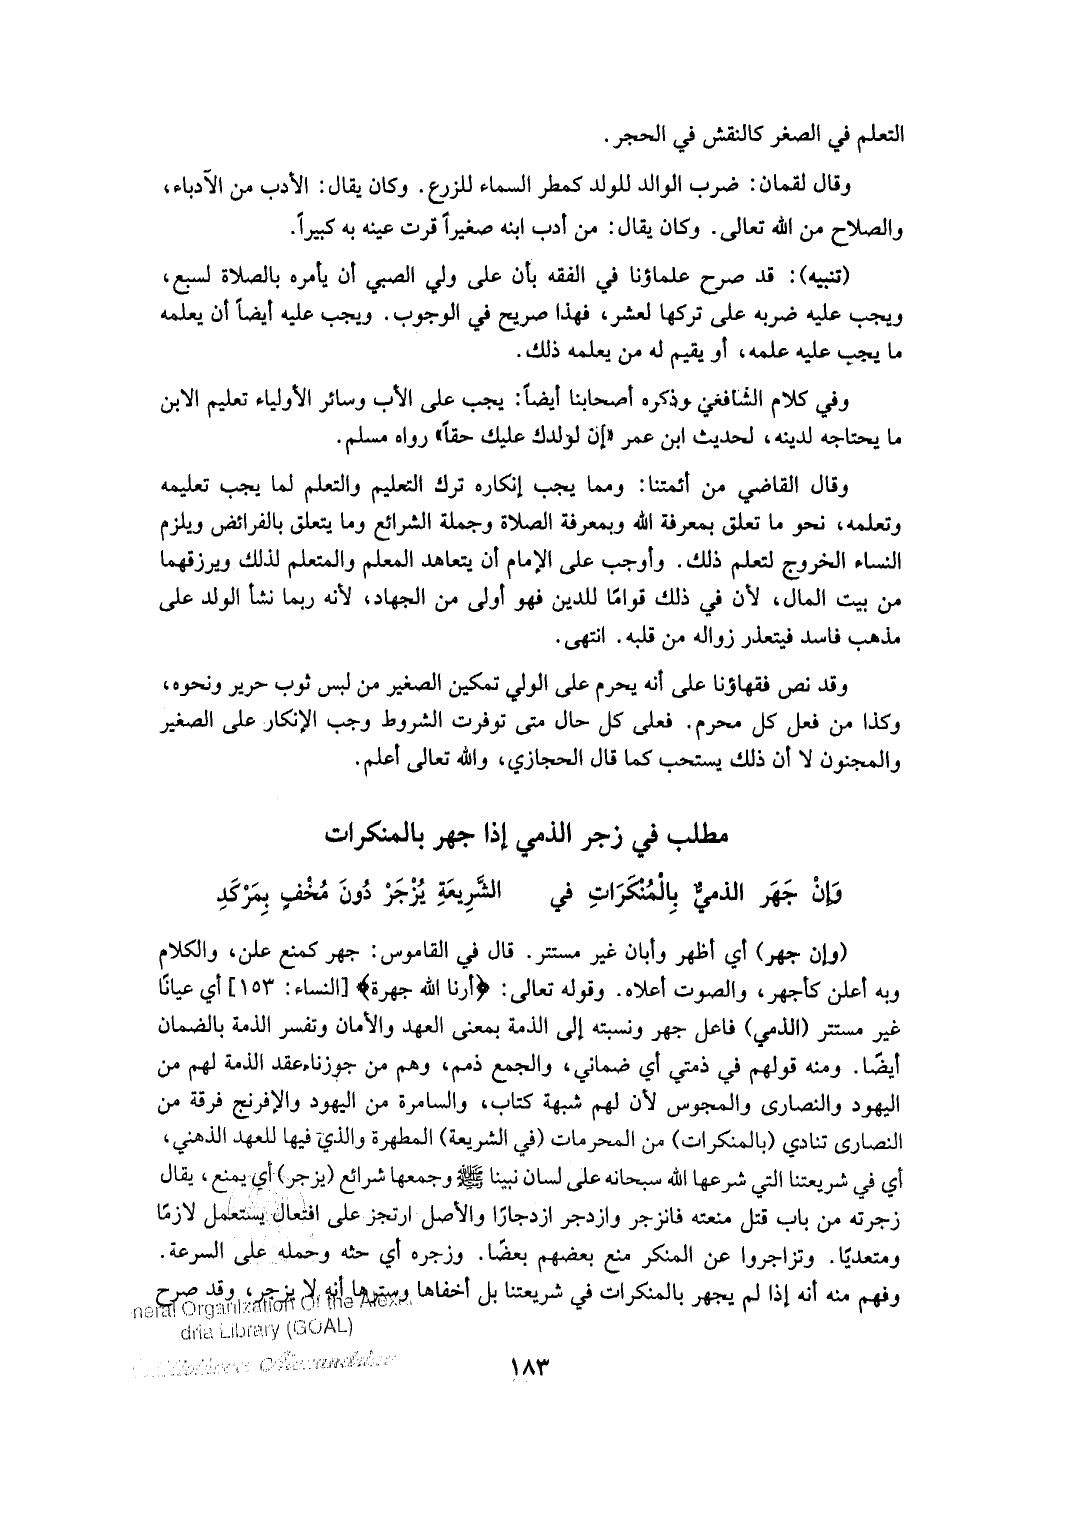 التعلم في الصغر كالنقش في الحجر.
وقال لقمان: ضرب الوالد للولد كمطر السماء للزرع. وكان يقال: الأدب من الآدباء،
والصلاح من الله تعالى. وكان يقال: من أدب ابنه صغيراً قرت عينه به كبيراً.
(تنبيه): قد صرح علماؤنا في الفقه بأن على ولي الصبي أن يأمره بالصلاة لسبع،
ويجب عليه ضربه على تركها لعشر، فهذا صريح في الوجوب. ويجب عليه أيضاً أن يعلمه
ما يجب عليه علمه، أو يقيم له من يعلمه ذلك.
وفي كلام الشافعي وذكره أصحابنا أيضاً: يجب على الأب وسائر الأولياء تعليم الابن
ما يحتاجه لدينه، لحديث ابن عمر «إن لولدك عليك حقاً» رواه مسلم.
وقال القاضي من أئمتنا: ومما يجب إنكاره ترك التعليم والتعلم لما يجب تعليمه
وتعلمه، نحو ما تعلق بمعرفة الله وبمعرفة الصلاة وجملة الشرائع وما يتعلق بالفرائض ويلزم
النساء الخروج لتعلم ذلك. وأوجب على الإمام أن يتعاهد المعلم والمتعلم لذلك ويرزقهما
من بيت المال، لأن في ذلك قوامًا للدين فهو أولى من الجهاد، لأنه ربما نشأ الولد على
مذهب فاسد فيتعذر زواله من قلبه. انتهى.
وقد نص فقهاؤنا على أنه يحرم على الولي تمكين الصغير من لبس ثوب حرير ونحوه،
وكذا من فعل كل محرم. فعلى كل حال متى توفرت الشروط وجب الإنكار على الصغير
والمجنون لا أن ذلك يستحب كما قال الحجازي، والله تعالى أعلم.
مطلب في زجر الذمي إذا جهر بالمنكرات
وَإنْ جَهَر الذميُّ بِالْمُنْكَرَاتِ في الشَّرِيعَةِ يُزْجَرْ دُونَ مُخْفٍ بِمَرْكَدِ
(وإن جهر) أي أظهر وأبان غير مستتر. قال في القاموس: جهر كمنع علن، والكلام
وبه أعلن كأجهر، والصوت أعلاه. وقوله تعالى: ﴿أرنا الله جهرة﴾ [النساء: ١٥٣] أي عيانًا
غير مستتر (الذمي) فاعل جهر ونسبته إلى الذمة بمعنى العهد والأمان وتفسر الذمة بالضمان
أيضًا. ومنه قولهم في ذمتي أي ضماني، والجمع ذمم، وهم من جوزنا عقد الذمة لهم من
اليهود والنصارى والمجوس لأن لهم شبهة كتاب، والسامرة من اليهود والإفرنج فرقة من
النصارى تنادي (بالمنكرات) من المحرمات (في الشريعة) المطهرة والذي فيها للعهد الذهني،
أي في شريعتنا التي شرعها الله سبحانه على لسان نبينا ﷺ وجمعها شرائع (يزجر) أي يمنع، يقال
زجرته من باب قتل منعته فانزجر وازدجر ازدجارًا والأصل ارتجز على افتعال يستعمل لازمًا
ومتعديًا. وتزاجروا عن المنكر منع بعضهم بعضًا. وزجره أي حثه وحمله على السرعة.
وفهم منه أنه إذا لم يجهر بالمنكرات في شريعتنا بل أخفاها وسترها أنه لا يزجر، وقد صرح
neral Organization Of the Alex
dria Library (GOAL)
١٨٣